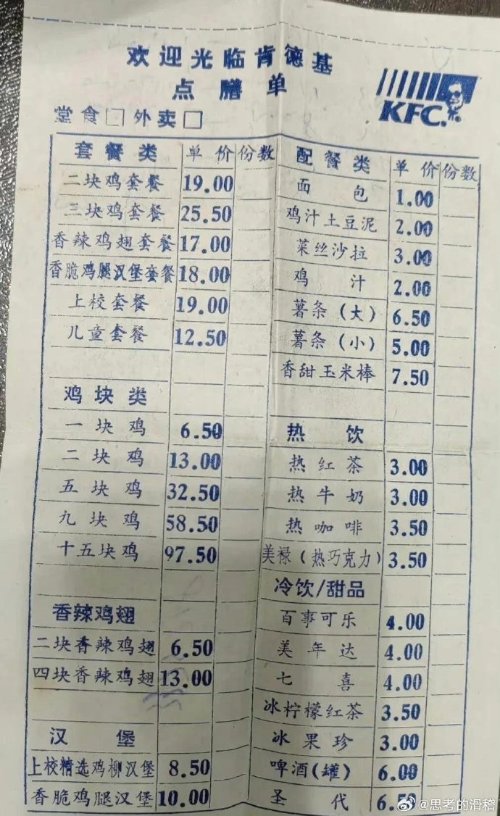 欢迎光临肯德基
点膳单
KFC.
堂食□外卖□
套餐类 单价 份数
二块鸡套餐 19.00
三块鸡套餐 25.50
香辣鸡翅套餐 17.00
香脆鸡腿汉堡套餐 18.00
上校套餐 19.00
儿童套餐 12.50
鸡块类
一块鸡 6.50
二块鸡 13.00
五块鸡 32.50
九块鸡 58.50
十五块鸡 97.50
香辣鸡翅
二块香辣鸡翅 6.50
四块香辣鸡翅 13.00
汉堡
上校精选鸡柳汉堡 8.50
香脆鸡腿汉堡 10.00
配餐类 单价 份数
面包 1.00
鸡汁土豆泥 2.00
菜丝沙拉 3.00
鸡汁 2.00
薯条(大) 6.50
薯条(小) 5.00
香甜玉米棒 7.50
热饮
热红茶 3.00
热牛奶 3.00
热咖啡 3.50
美禄(热巧克力) 3.50
冷饮/甜品
百事可乐 4.00
美年达 4.00
七喜 4.00
冰柠檬红茶 3.50
冰果珍 3.00
啤酒(罐) 6.00
圣代 6.50
@思考的滑稽